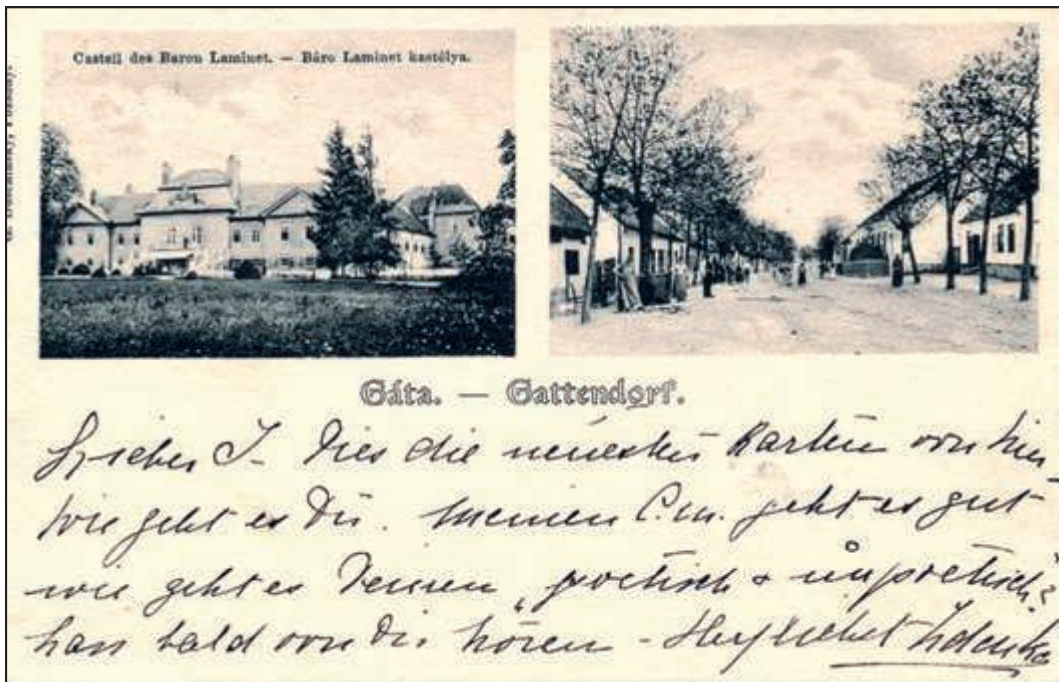 Castell des Baron Laminet. — Báro Laminet kastélya.
Gáta. — Gattendorf.
Lieber J. Dies die neuesten Karten von hier
wie geht es Dir. Meinen C.m. geht es gut
wie geht es Deinen „poetisch + unpoetisch"?
lass bald von Dir hören – Herzlichst Zdenka